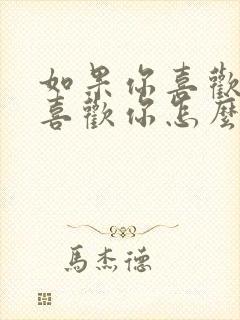 如果你喜歡
喜歡你怎麼
馬杰德